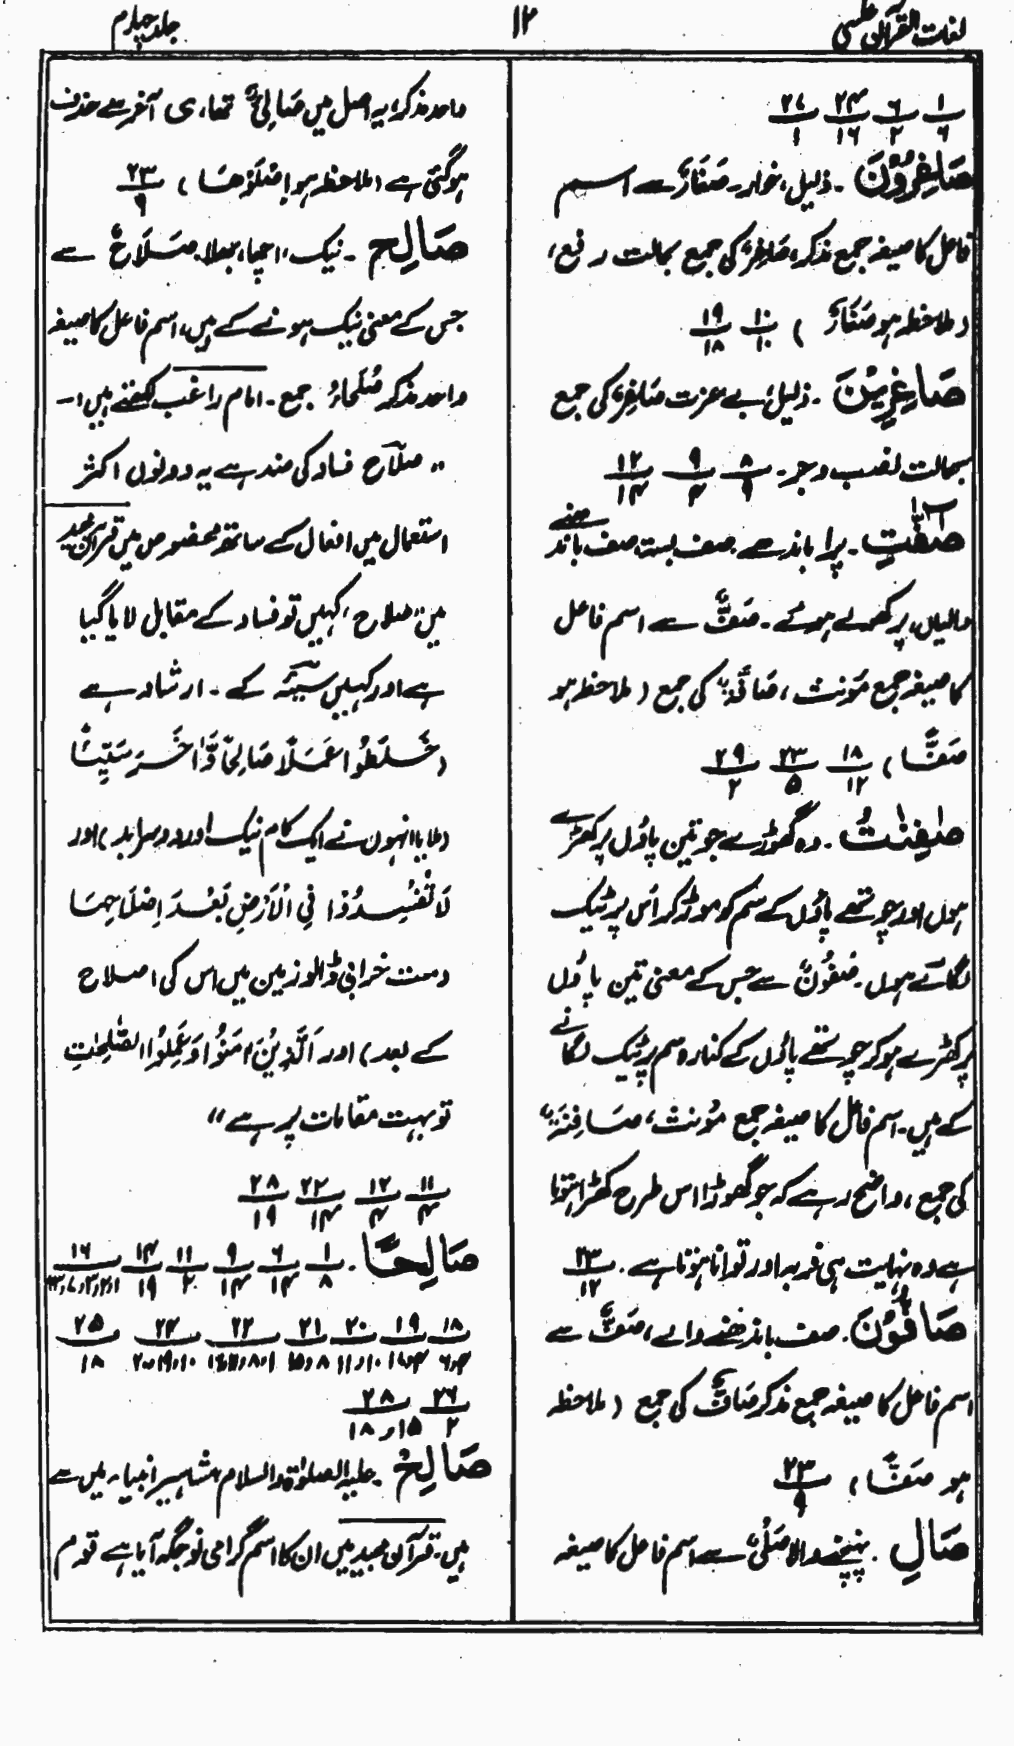 لغات القرآن
۱۲
جلد چہارم
۱/۶ ۶/۲ ۲۴/۱۶ ۲۷/۱
صَاغِرُوْنَ ۔ ذلیل، خوار۔ صَغَارٌ سے اسم
فاعل کا صیغہ جمع مذکر، صَاغِرٌ کی جمع بحالت رفع،
(ملاحظہ ہو صَغَارٌ ) ۱۰/۱۰ ۱۹/۱۸
صَاغِرِیْنَ ۔ ذلیل، بے عزت صَاغِرٌ کی جمع
بحالت نصب وجر۔ ۸/۹ ۹/۴ ۱۲/۱۴
صٰٓفّٰتٍ ۔ پرا باندھے صف بستہ صف باندھنے
والیاں، پر کھولے ہوئے ۔ صَفٌّ سے اسم فاعل
کا صیغہ جمع مؤنث، صَافَّۃٌ کی جمع (ملاحظہ ہو
صَفًّا ) ۱۸/۱۲ ۲۳/۵ ۲۹/۲
صٰفِنٰتُ ۔ وہ گھوڑے جو تین پاؤں پر کھڑے
ہوں اور چوتھے پاؤں کے سم کو موڑ کر اس پر ٹیک
لگائے ہوں ۔ صُفُوْنٌ سے جس کے معنی تین پاؤں
پر کھڑے ہو کر چوتھے پاؤں کے کنارہ سم پر ٹیک لگانے
کے ہیں ۔ اسم فاعل کا صیغہ جمع مؤنث، صَافِنَۃٌ
کی جمع، واضح رہے کہ جو گھوڑا اس طرح کھڑا ہوتا
ہے وہ نہایت ہی فربہ اور توانا ہوتا ہے ۔ ۲۳/۱۲
صَافُّوْنَ ۔ صف باندھنے والے، صَفٌّ سے
اسم فاعل کا صیغہ جمع مذکر صَافٌّ کی جمع (ملاحظہ
ہو صَفًّا ) ۲۳/۹
صَالِ ۔ پہنچنے والا صَلْیٌ سے اسم فاعل کا صیغہ
واحد مذکر، یہ اصل میں صَالِیٌ تھا، ی آخر سے حذف
ہوگئی ہے (ملاحظہ ہو اِصْلَوْهَا ) ۲۳/۹
صَالِحٌ ۔ نیک، اچھا، بھلا۔ صَلَاحٌ سے
جس کے معنی نیک ہونے کے ہیں، اسم فاعل کا صیغہ
واحد مذکر صُلَحَاءُ جمع ۔ امام راغب لکھتے ہیں :۔
" صلاح فساد کی ضد ہے یہ دونوں اکثر
استعمال میں افعال کے ساتھ مخصوص ہیں قرآن مجید
میں صلاح، کہیں تو فساد کے مقابل لایا گیا
ہے اور کہیں سیئہ کے ۔ ارشاد ہے
(خَلَطُوْا عَمَلًا صَالِحًا وَّاٰخَرَ سَیِّئًا
(ملایا انہوں نے ایک کام نیک اور دوسرا بد) اور
لَا تُفْسِدُوْا فِی الْاَرْضِ بَعْدَ اِصْلَاحِهَا
(مت خرابی ڈالو زمین میں اس کی اصلاح
کے بعد) اور الَّذِیْنَ اٰمَنُوْا وَعَمِلُوا الصّٰلِحٰتِ
تو بہت مقامات پر ہے "
۱۱/۴ ۱۲/۴ ۲۲/۱۴ ۲۸/۱۹
صَالِحًا ۔ ۱/۸ ۶/۱۴ ۹/۱۴ ۱۱/۲ ۱۴/۱۹ ۱۶/
۱۸/ ۱۹/ ۲۰/۱۰و۱۱ ۲۱/۸و۱۵ ۲۲/ ۲۴/۱۰و۱۹و۲۰ ۲۵/۱۸
۲۶/۲ ۲۸/۱۵و۱۸
صَالِحٌ علیہ الصلوٰۃ والسلام مشاہیر انبیاء میں سے
ہیں ۔ قرآن مجید میں ان کا اسم گرامی نو جگہ آیا ہے قوم